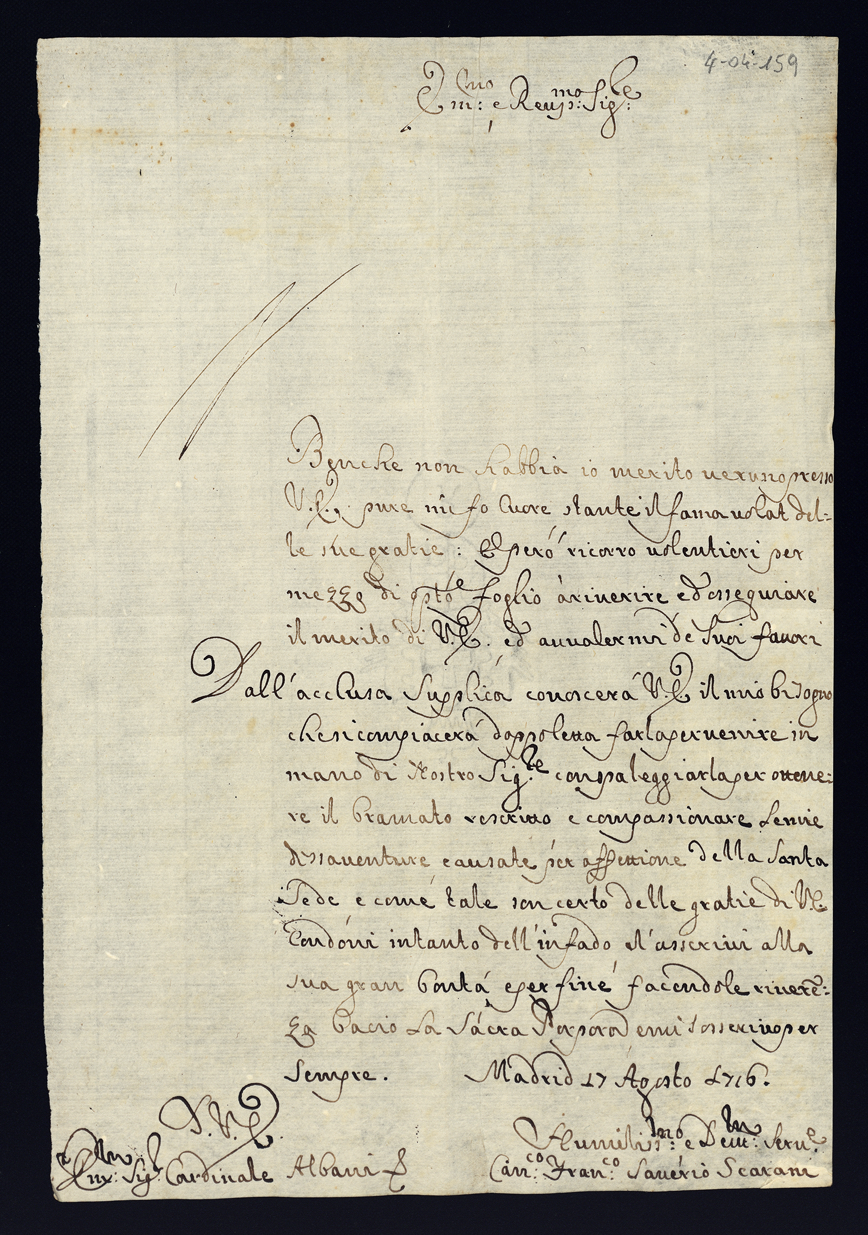 4-04-159
Em:mo e Reuss:mo Sig:re
Benche non habbia io merito ueruno presso
V.E. pure mi fo Cuore stante il fama uolat del=
le sue gratie: E però ricorro uolentieri per
mezzo di q.sto foglio à riuerire ed'ossequiare
il merito di V.E. ed auualermi de Suoi fauori
Dall'acclusa Suplica conoscerà V.E. il mio bisogno
che si compiacerà doppo letta farla peruenire in
mano di Nostro Sig.re con paleggiarla per ottene=
re il bramato rescritto e compassionare le mie
dissauenture causate per affettione della Santa
Sede e come tale son certo delle gratie di V.E.
Condoni intanto dell'infado et'asseriui alla
sua gran bontà e per fine facendole riuere=
za bacio La Sacra Porpora e mi sosscriuo per
Sempre. Madrid 17 Agosto 1716.
D.V.E.
Em:mo Sig:r Cardinale Albani
Humiliss:mo e Deu:mo Seru:e
Can:co Fran:co Sauerio Scarani